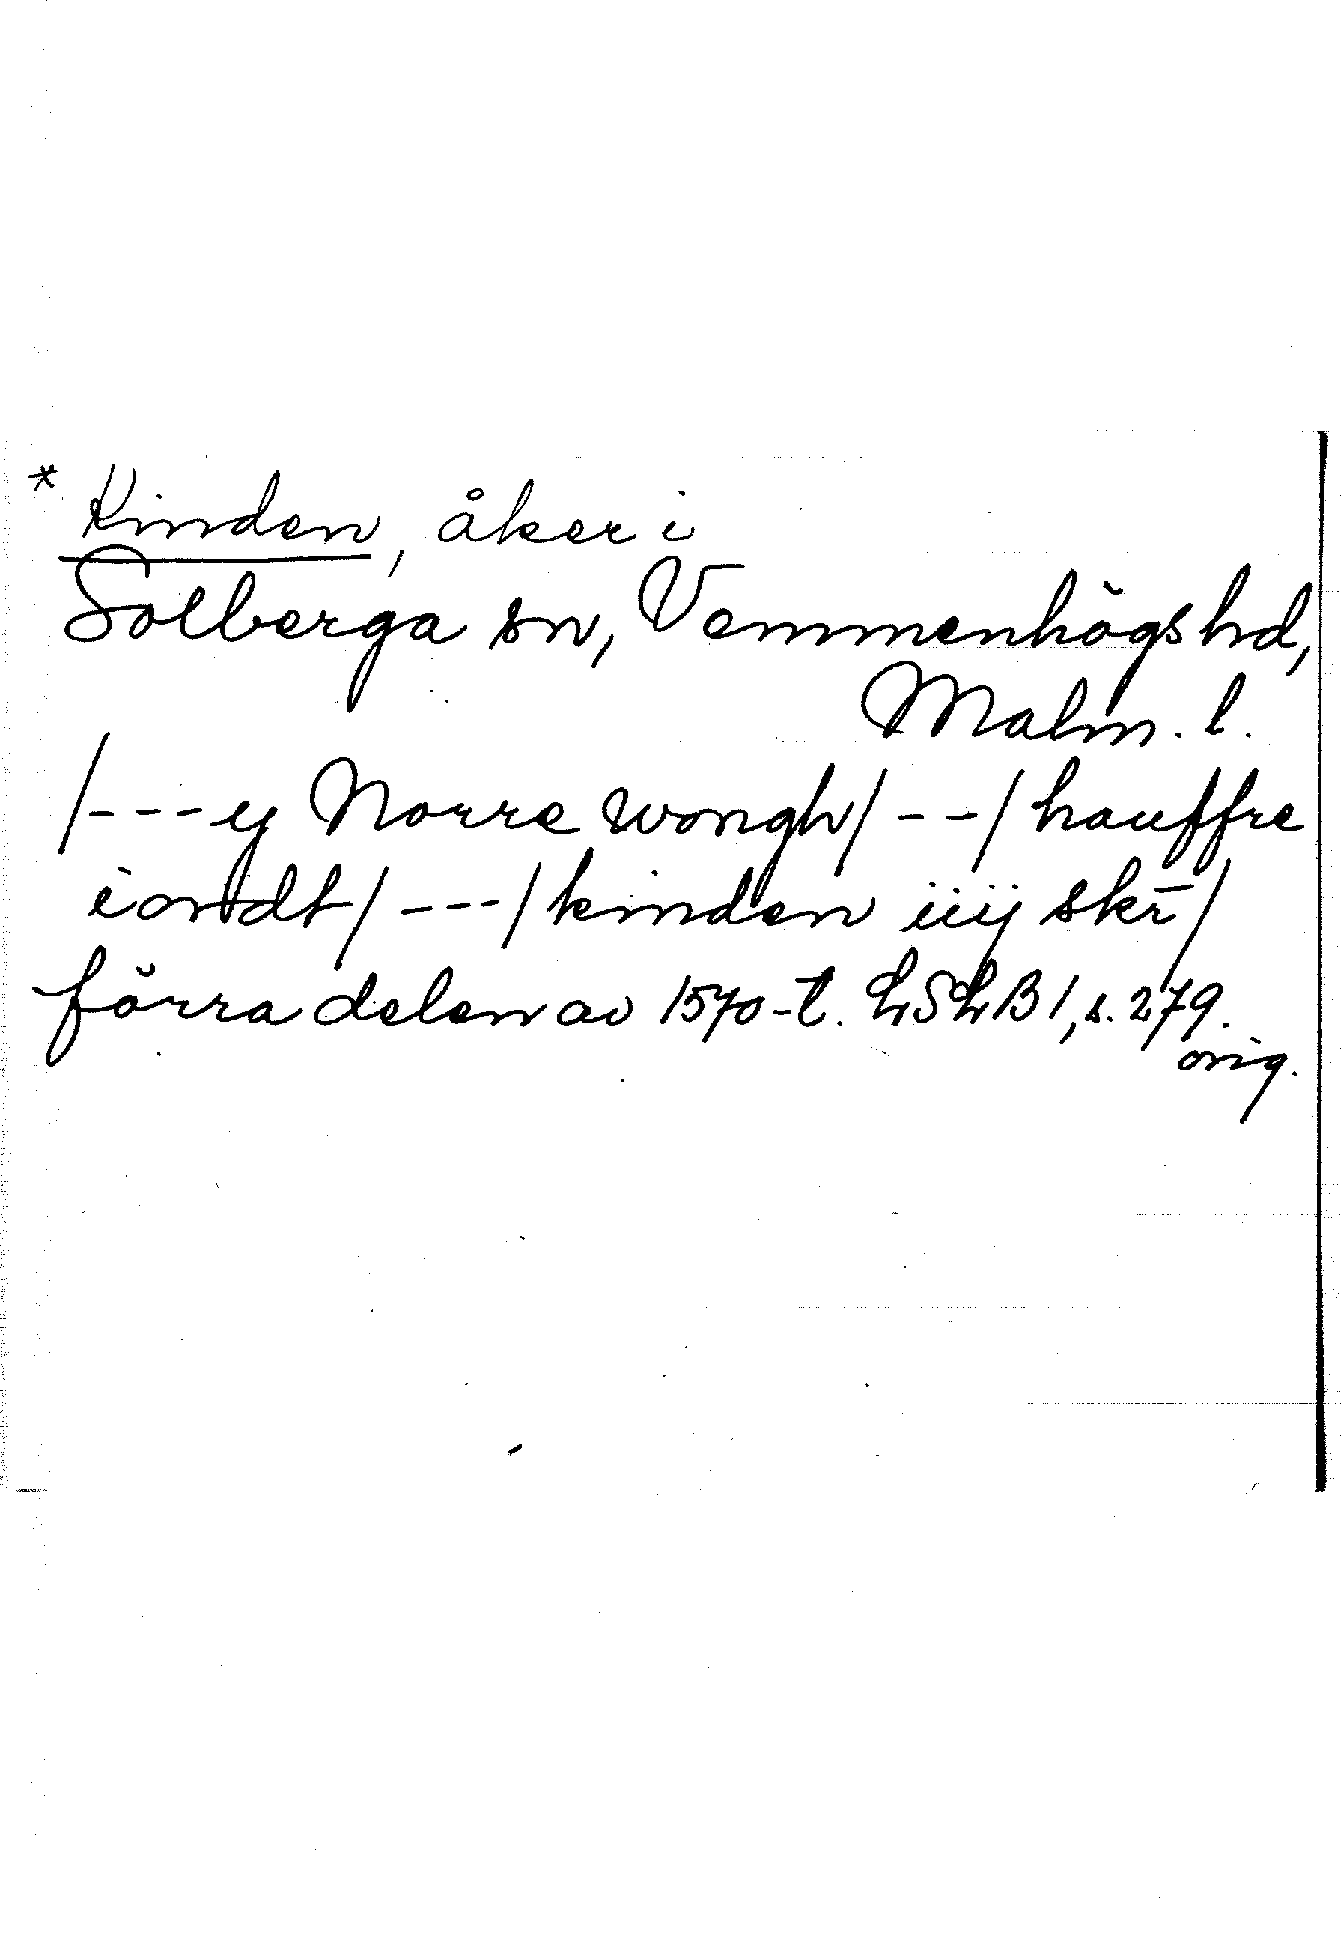 * Kinden, åker i
Solberga sn, Vemmenhögs hd,
Malm. l.
/---ey Norre wongh/--/hauffre
iordt/---/kinden iiij skr̄/
förra delen av 1570-t. LSLB 1, s. 279.
orig.